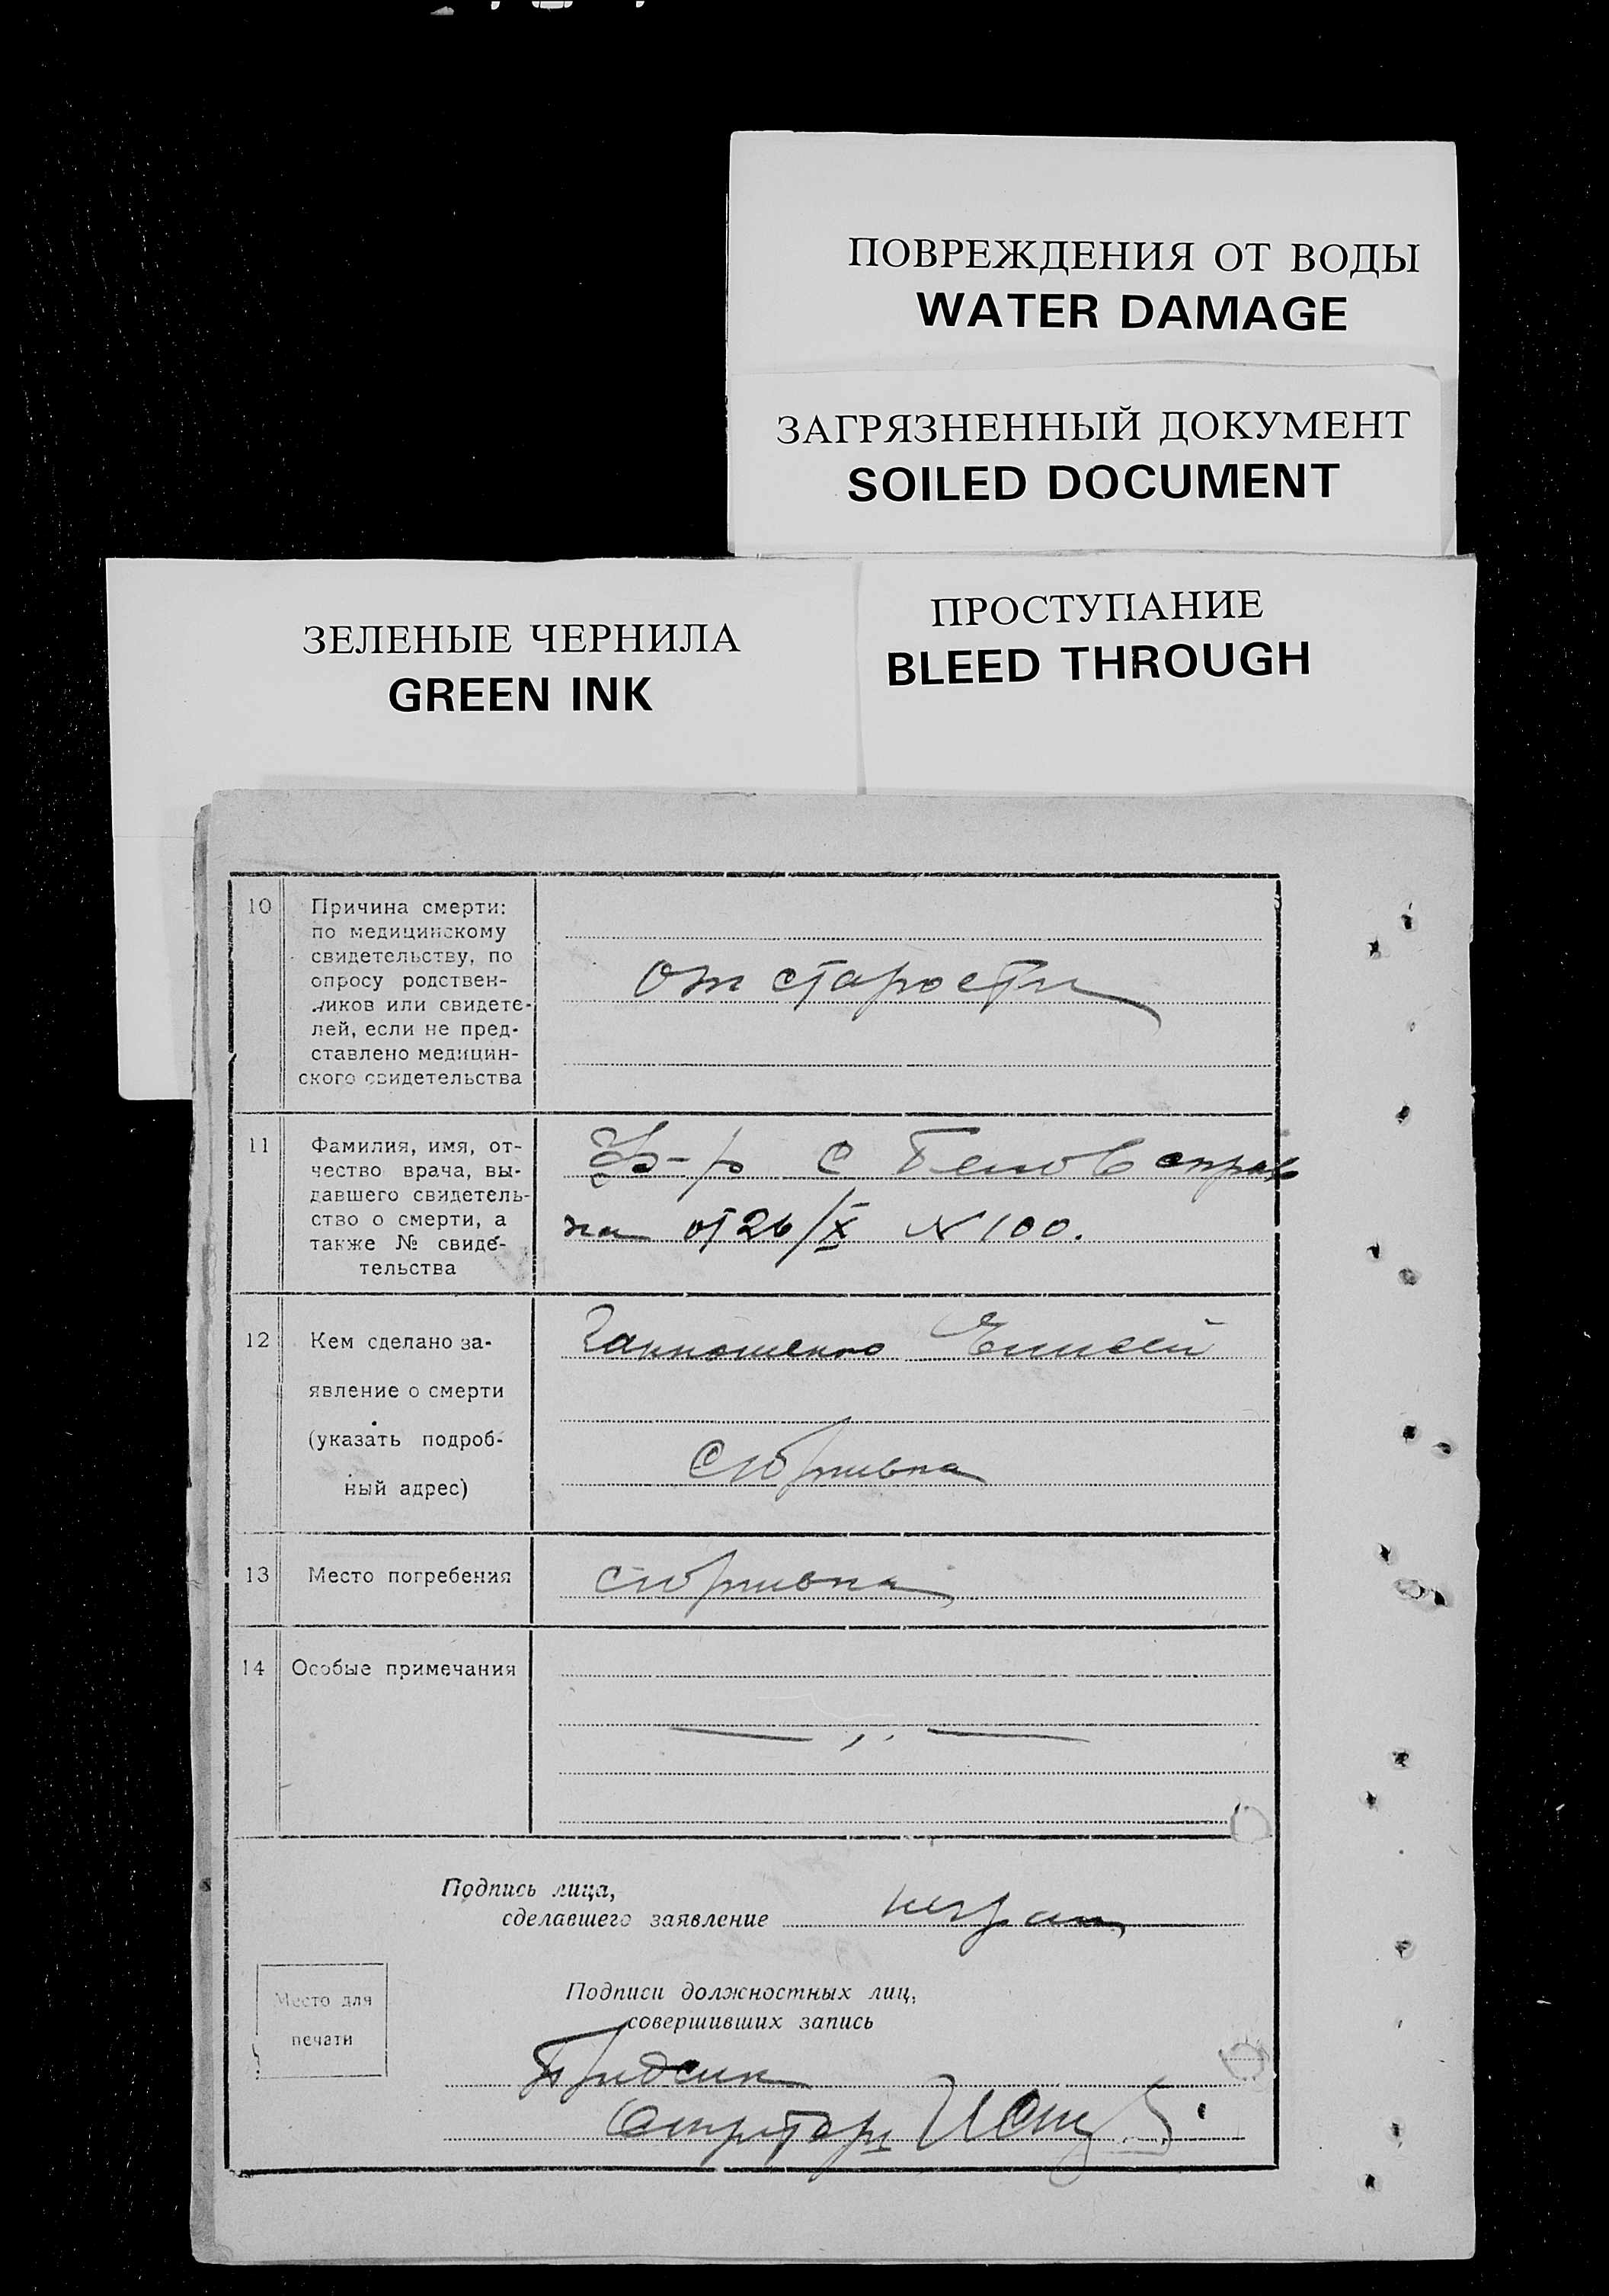 ПОВРЕЖДЕНИЯ ОТ ВОДЫ
WATER DAMAGE
ЗАГРЯЗНЕННЫЙ ДОКУМЕНТ
SOILED DOCUMENT
ЗЕЛЕНЫЕ ЧЕРНИЛА
GREEN INK
ПРОСТУПАНИЕ
BLEED THROUGH
10
Причина смерти:
по медицинскому
свидетельству, по
опросу родствен-
ников или свидете-
лей, если не пред-
ставлено медицин-
ского свидетельства
от старости
11
Фамилия, имя, от-
чество врача, вы-
давшего свидетель-
ство о смерти, а
также № свиде-
тельства
ф-р с справ
ка от 26/X N 100.
12
Кем сделано за-
явление о смерти
(указать подроб-
ный адрес)
Елисей
13
Место погребения
14
Особые примечания
Подпись лица,
сделавшего заявление
Место для
печати
Подписи должностных лиц,
совершивших запись